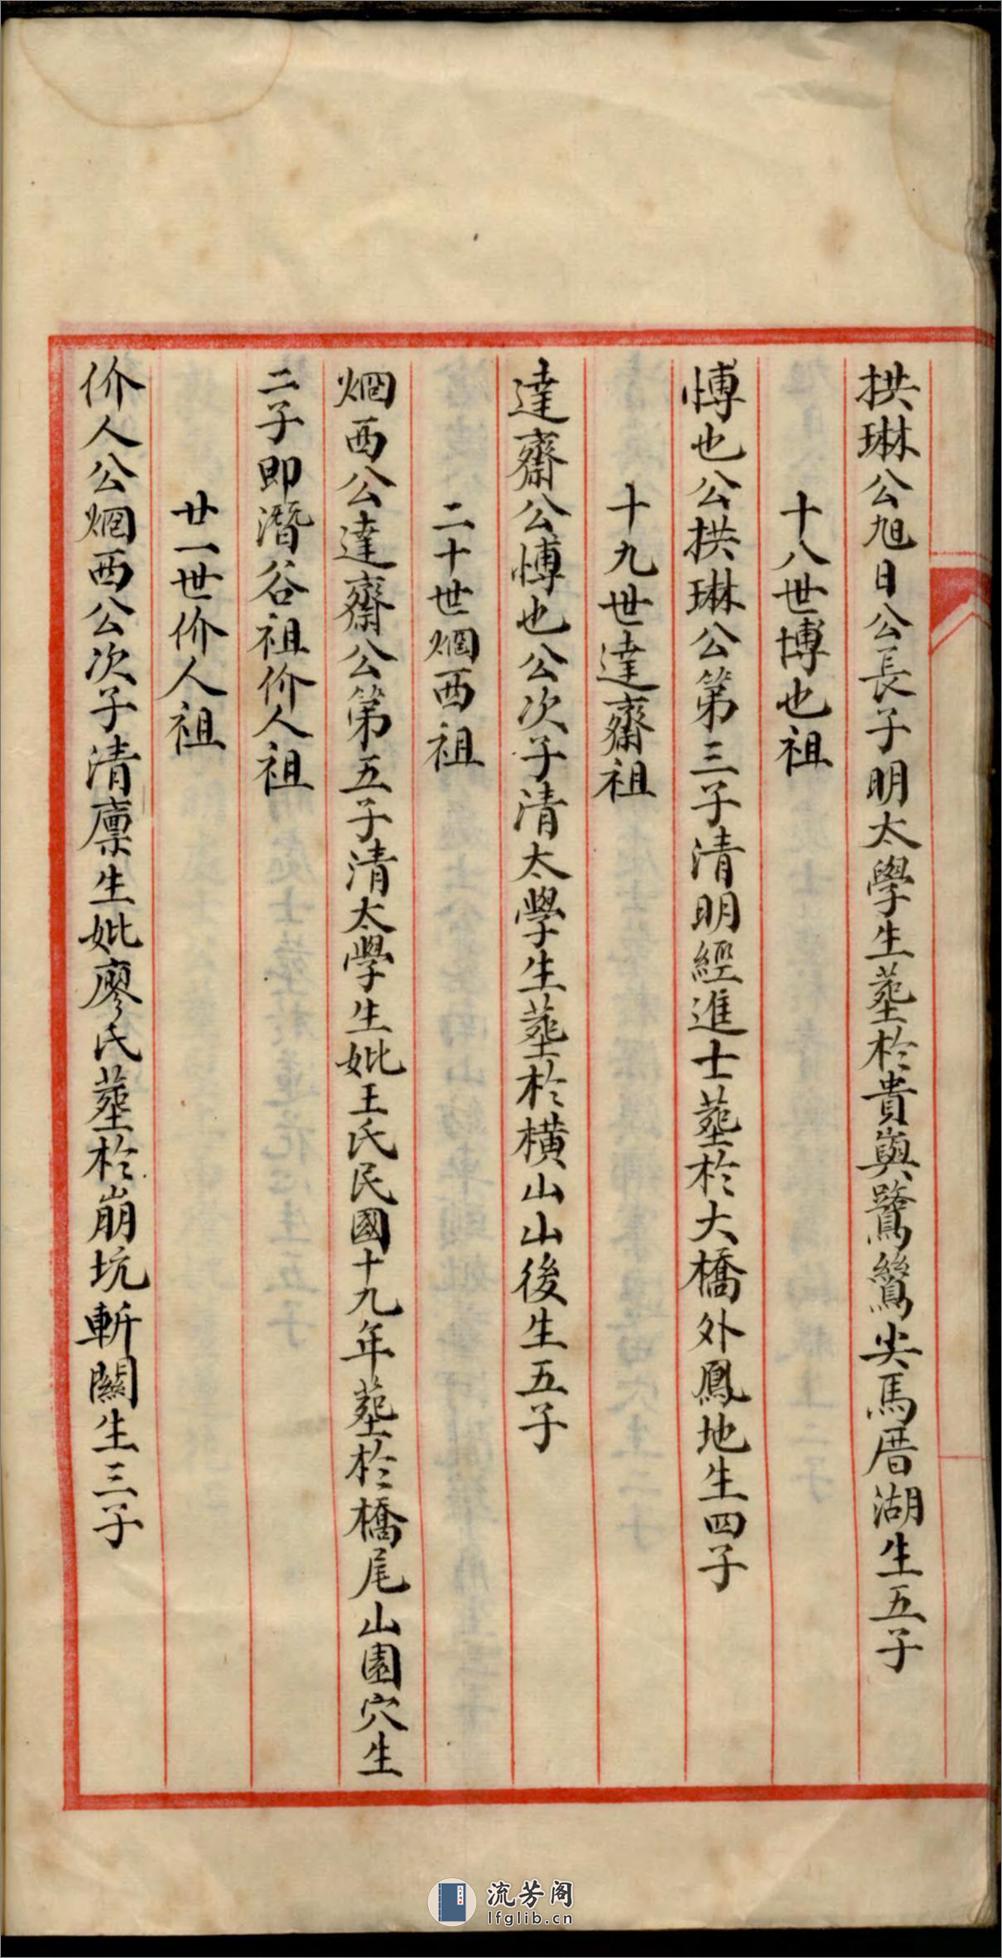 拱琳公旭日公長子明太學生塟於貴嶼鷺鷥尖馬厝湖生五子
十八世博也祖
愽也公拱琳公第三子清明經進士塟於大橋外鳳地生四子
十九世達齋祖
達齋公愽也公次子清太學生塟於橫山山後生五子
二十世烟西祖
烟西公達齋公第五子清太學生妣王氏民國十九年塟於橋尾山園穴生
二子即潛谷祖价人祖
廿一世价人祖
价人公烟西公次子清廩生妣廖氏塟於崩坑斬關生三子
流芳阁
lfglib.cn